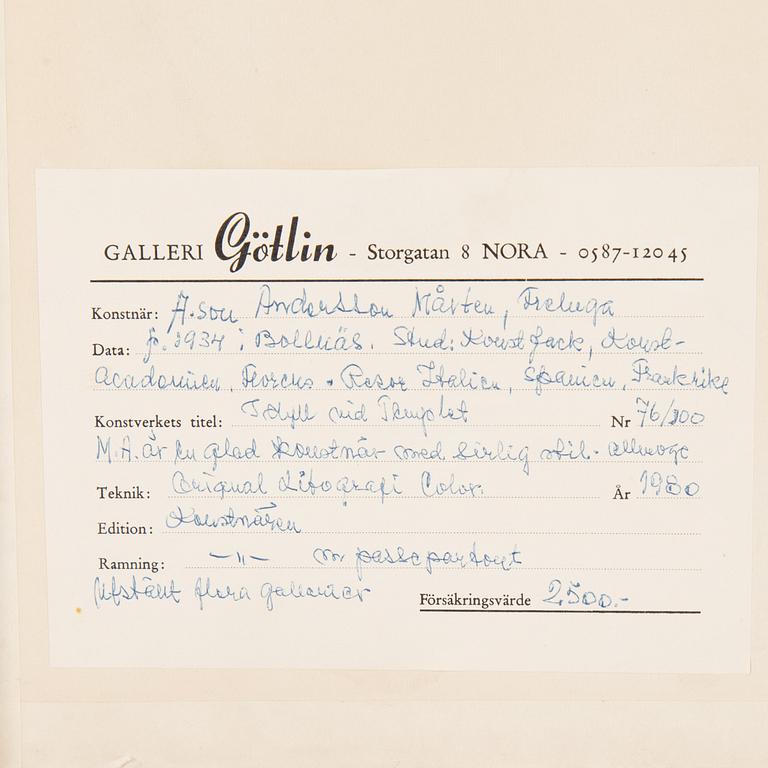 GALLERI Götlin - Storgatan 8 NORA - 0587-12045
Konstnär: A:son Andersson Mårten, Freluga
Data: f. 1934 i Bollnäs. Stud: Konstfack, Konst-
Academien, Florens. Resor Italien, Spanien, Frankrike
Konstverkets titel: Idyll vid Templet Nr 76/200
M.A. är en glad konstnär med sirlig stil. allmoge
Teknik: Original Litografi Color. År 1980
Edition: Konstnären
Ramning: -"- m passepartout
Utställt flera gallerier Försäkringsvärde 2500.-